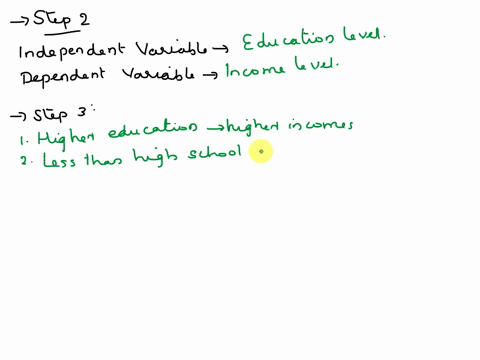 → Step 2
Independent Variable → Education level.
Dependent Variable → Income level.
→ Step 3:
1. Higher education → higher incomes
2. Less than high school